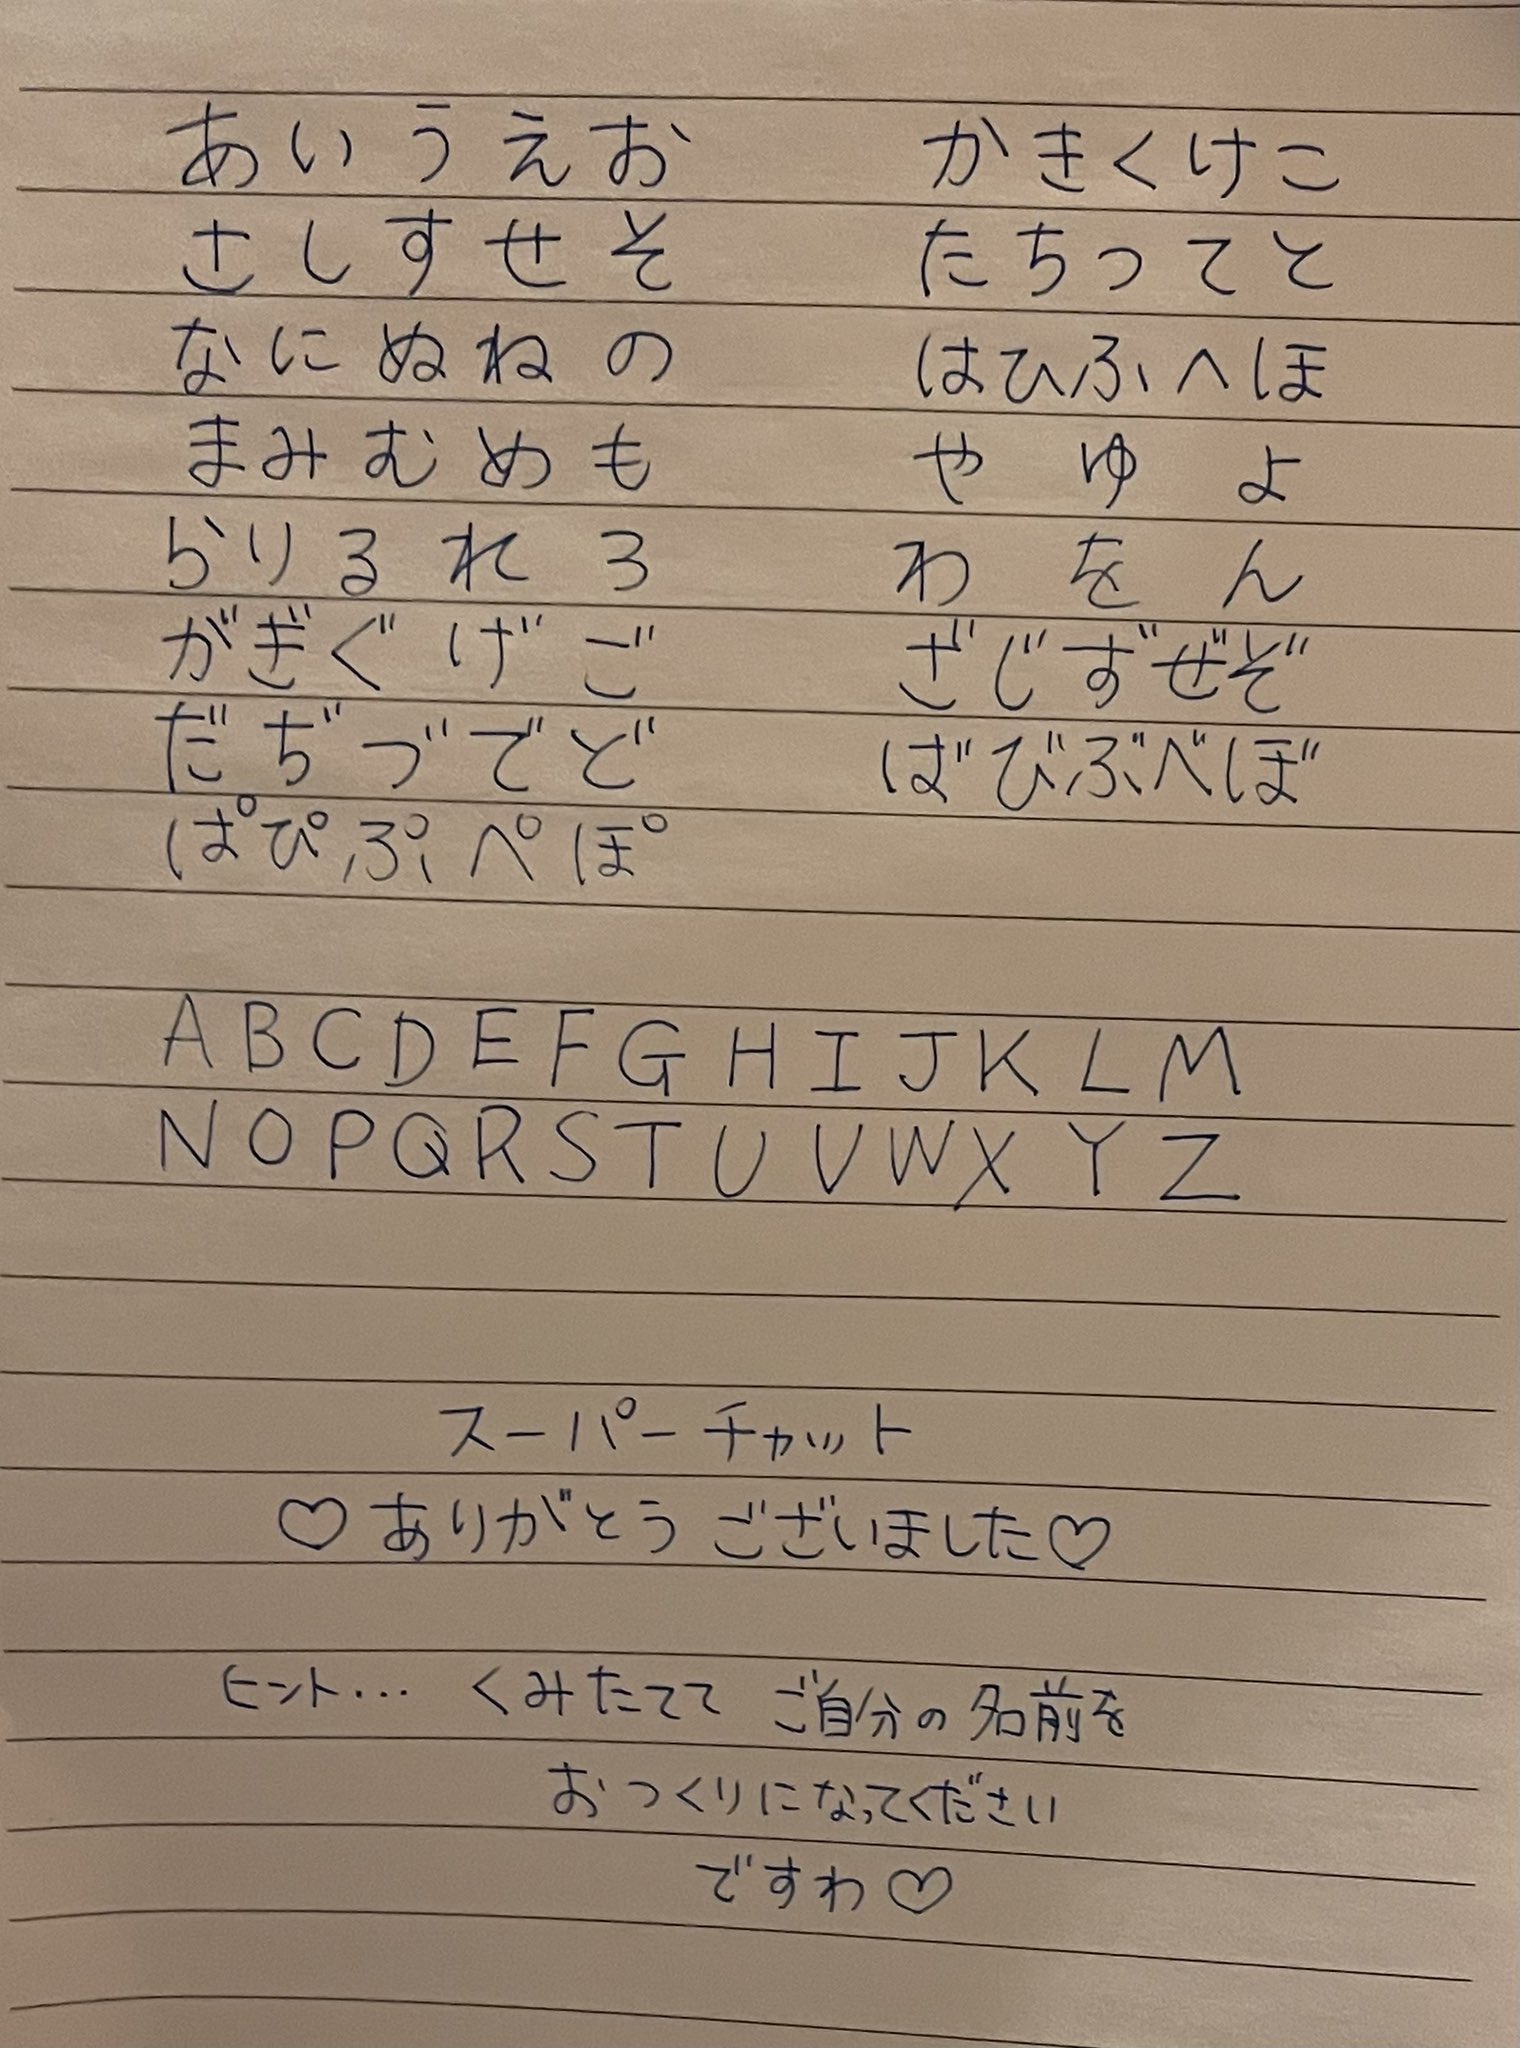 あいうえお かきくけこ
さしすせそ たちつてと
なにぬねの はひふへほ
まみむめも や ゆ よ
らりるれろ わ を ん
がぎぐげご ざじずぜぞ
だぢづでど ばびぶべぼ
ぱぴぷぺぽ
A B C D E F G H I J K L M
N O P Q R S T U V W X Y Z
スーパーチャット
♡ありがとうございました♡
ヒント… くみたてて ご自分の名前を
おつくりになってください
ですわ♡